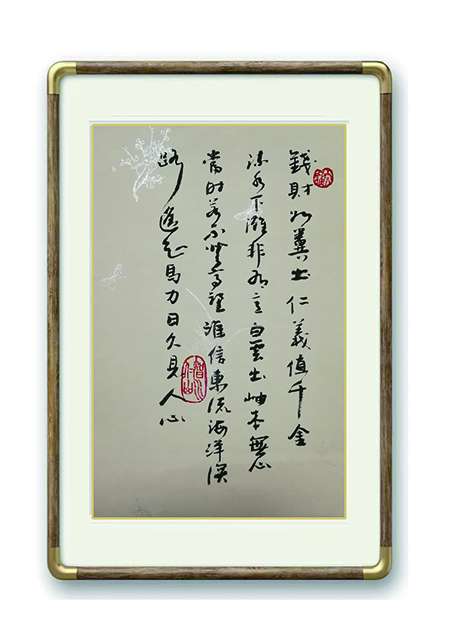 錢財如糞土仁義值千金
流水下灘非有意白雲出岫本無心
當时若不登高望誰信東流海洋深
路遙知馬力日久見人心